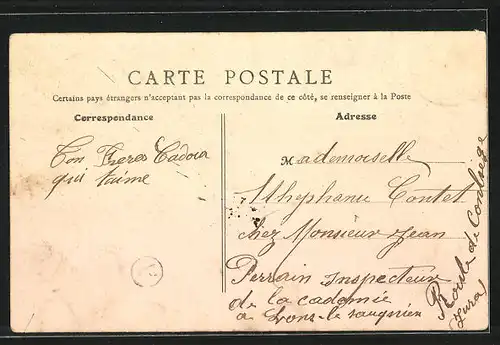 CARTE POSTALE
Certains pays étrangers n'acceptant pas la correspondance de ce côté, se renseigner à la Poste
Correspondance
Adresse
Ton Freres Cadoia
qui t'aime
Mademoiselle
Sthephanie Contet
chez Monsieur Jean
Perrain inspecteur
de la cademie
a Lons-le saugnier
Route de Conliege
Jura